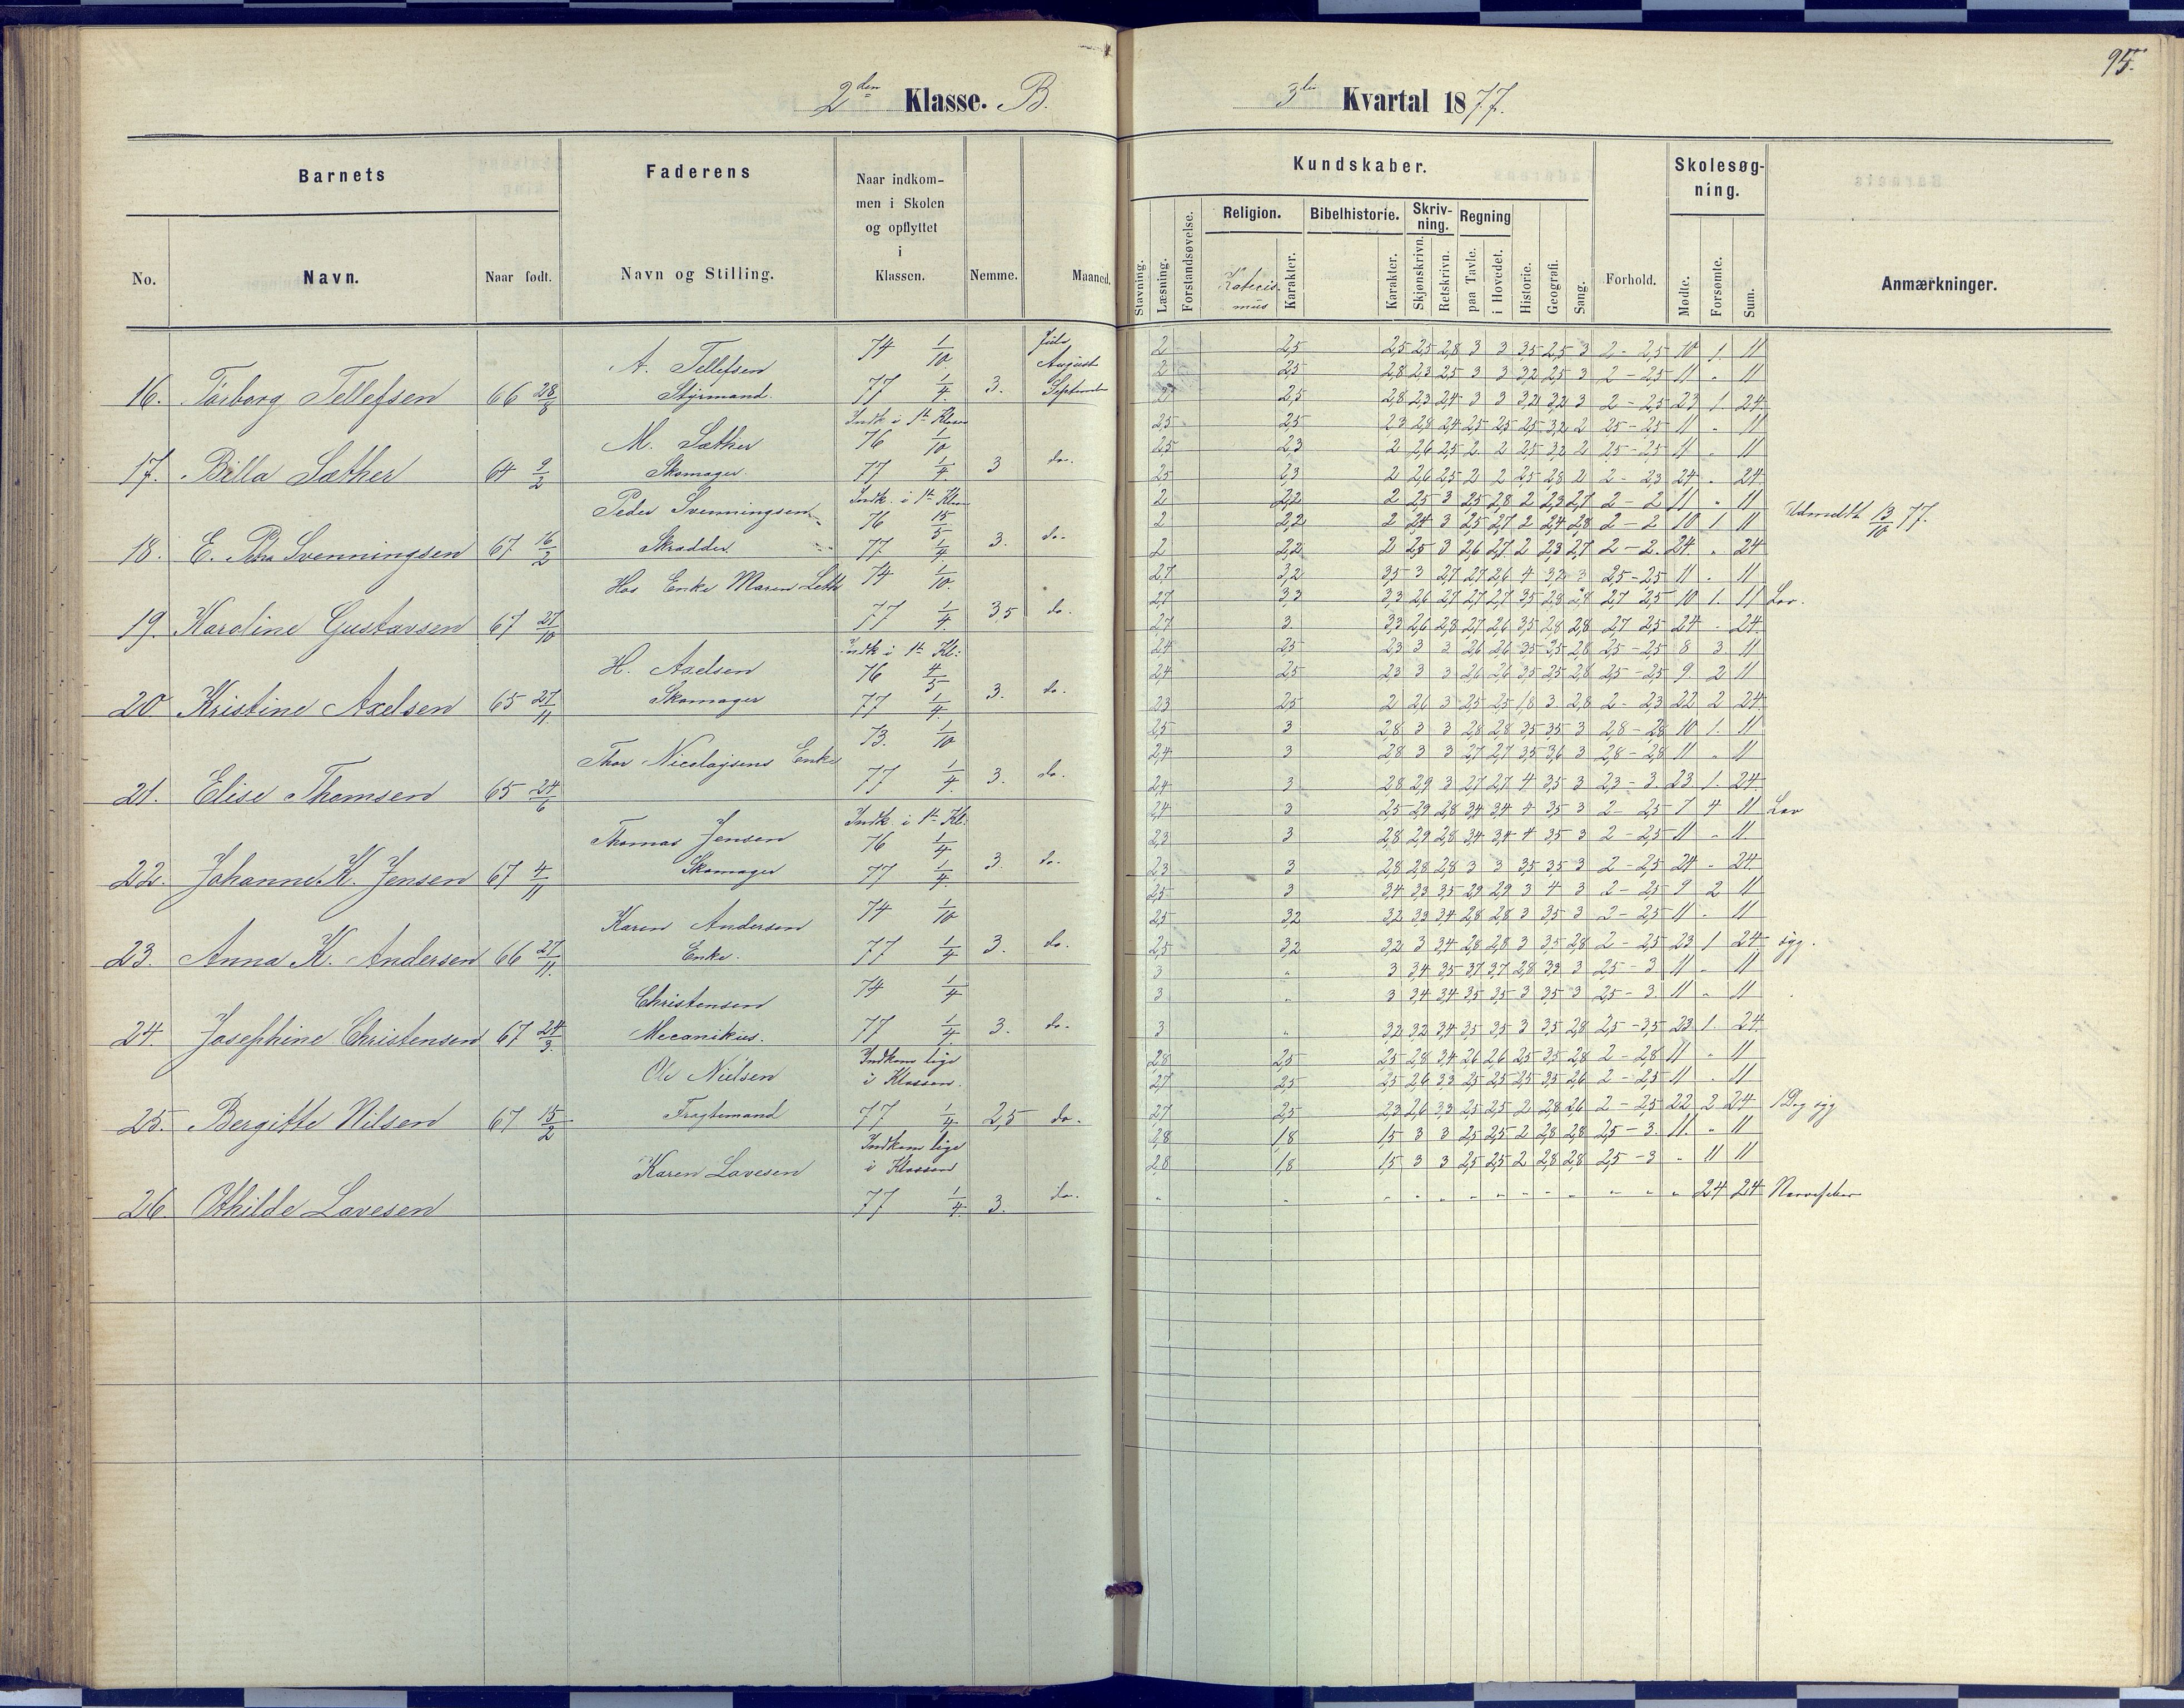 95.
2den Klasse. B.
3die Kvartal 1877.
Barnets
Faderens
Naar indkom-
men i Skolen
og opflyttet
i
Klassen.
No.
Navn.
Naar født.
Navn og Stilling.
Nemme.
Maaned.
Kundskaber.
Stavning.
Læsning.
Forstandsøvelse.
Religion.
Katecis-
mus
Karakter.
Bibelhistorie.
Karakter.
Skriv-
ning.
Skjønskrivn.
Retskrivn.
Regning
paa Tavle.
i Hovedet.
Historie.
Geografi.
Sang.
Forhold.
Skolesøg-
ning.
Mødte.
Forsømte.
Sum.
Anmærkninger.
A. Tellefsen 74 1/10 Juli
August
16. Torborg Tellefsen 66 28/8 Styrmand. 77 1/4 3. September
2 2,5 2,5 2,5 2,8 3 3 3,5 2,5 3 2 - 2,5 10 1. 11
2 2,5 2,8 2,3 2,5 3 3 3,2 2,5 3 2 - 2,5 11 " 11
2,5 2,8 2,3 2,4 3 3 3,2 3,2 3 2 - 2,5 23 1. 24
Indk. i 1te Klasse
M. Sæther 76 1/10
17. Billa Sæther 64 9/2 Skomager. 77 1/4 3 do.
2,5 2,5 2,3 2,8 2,4 2,5 2,5 2,5 3,2 2 2,5 - 2,5 11 " 11
2,5 2,3 2 2,6 2,5 2 2 2,5 3,2 2 2,5 - 2,5 11 " 11
2,5 2,3 2 2,6 2,5 2 2 2,5 2,8 2 2 - 2,3 24 " 24
Indk. i 1te Klasse
Peder Svenningsen 76 15/5
18. E. Petra Svenningsen 67 16/2 Skrædder. 77 1/4 3. do.
2 2,2 2 2,5 3 2,5 2,8 2 2,3 2,7 2 - 2 11 " 11
2 2,2 2 2,4 3 2,5 2,7 2 2,4 2,8 2 - 2 10 1 11
Udmeldt 13/10 77.
2 2,2 2 2,5 3 2,6 2,7 2 2,3 2,7 2 - 2. 24 " 24
Hos Enke Maren Leth 74 1/10.
19. Karoline Gustavsen 67 27/10 77 1/4 3,5 do.
2,7 3,2 3,5 3 2,7 2,7 2,6 4 3,2 3 2,5 - 2,5 11 " 11
2,7 3,3 3,3 2,6 2,7 2,7 2,7 3,5 2,8 2,8 2,7 2,5 10 1. 11 Lov.
2,7 3. 3,3 2,6 2,8 2,7 2,6 3,5 2,8 2,8 2,7 2,5 24 " 24
Indk i 1te Kl:
H. Axelsen 76 4/5
20. Kristine Axelsen 65 27/11. Skomager 77 1/4 3. do.
2,4 2,5 2,3 3 3 2,6 2,6 3,5 2,5 2,8 2,5 - 2,5 8 3. 11
2,4 2,5 2,3 3 3 2,6 2,6 3,5 2,5 2,8 2,5 - 2,5 9. 2 11
2,3 2,5 2 2,6 3 2,5 2,5 1,8 3 2,8 2 - 2,3 22 2 24
73. 1/10
Thor Nicolaysens Enke
21. Elise Thomsen 65 24/6 77 1/4 3. do.
2,5 3 2,8 3 3 2,8 2,8 3,5 3,5 3 2,8 - 2,8 10 1. 11
2,4 3 2,8 3 3 2,7 2,7 3,5 3,6 3 2,8 - 2,8 11 " 11
2,4 3 2,8 2,9 3 2,7 2,7 4 3,5 3 2,3 - 3. 23 1. 24
Indk. i 1te Kl.
Thomas Jensen 76 1/4
22. Johanne K. Jensen 67 4/11 Skomager 77 1/4. 3. do.
2,4 3 2,5 2,9 2,8 3,4 3,4 4 3,5 3 2 - 2,5 7 4 11 Lov
2,3 3 2,8 2,9 2,8 3,4 3,4 4 3,5 3 2 - 2,5 11 " 11
2,3 3 2,8 2,8 2,8 3 3 3,5 3,5 3 2 - 2,5 24 " 24
Karen Andersen 74 1/10
23. Anna K. Andersen 66 27/11. Enke. 77 1/4 3. do.
2,5 3 3,4 3,3 3,5 2,9 2,9 3 4 3 2 - 2,5 9 2 11
2,5 3,2 3,2 3,3 3,4 2,8 2,8 3 3,5 3 2 - 2,5 11 " 11
2,5 3,2 3,2 3 3,4 2,8 2,8 3 3,5 2,8 2 - 2,5 23 1 24 syg.
Christensen 74 1/4
24. Josephine Christensen 67 24/3. Mecanikus. 77 1/4. 3. do.
3 " 3 3,4 3,5 3,7 3,7 2,8 3,3 3 2,5 - 3 11 " 11
3 " 3 3,4 3,4 3,5 3,5 3 3,5 3 2,5 - 3. 11 " 11
3 " 3,2 3,2 3,4 3,5 3,5 3 3,5 2,8 2,5 - 3,5 23 1. 24
Indkom lige
Ole Nielsen i Klassen.
25. Bergitte Nilsen 67 15/2 Fragtemand 77 1/4 2,5 do.
2,8 2,5 2,5 2,8 3,4 2,6 2,6 2,5 3,5 2,8 2 - 2,8 11 " 11
2,7 2,5 2,5 2,6 3,3 2,5 2,5 2,5 3,5 2,6 2 - 2,5 11 " 11
2,7 2,5 2,3 2,6 3,3 2,5 2,5 2 2,8 2,6 2 - 2,5 22 2 24 1 Dag syg
Indkom lige
Karen Lavesen i Klassen
26. Othilde Lavesen 77 1/4 3. do.
2,8 1,8 1,5 3 3 2,5 2,5 2 2,8 2,8 2,5 - 3. 11. " 11
2,8 1,8 1,5 3 3 2,5 2,5 2 2,8 2,8 2,5 - 3 " 11 11
" " " " " " " " " " " " " 24 24 Nervefeber